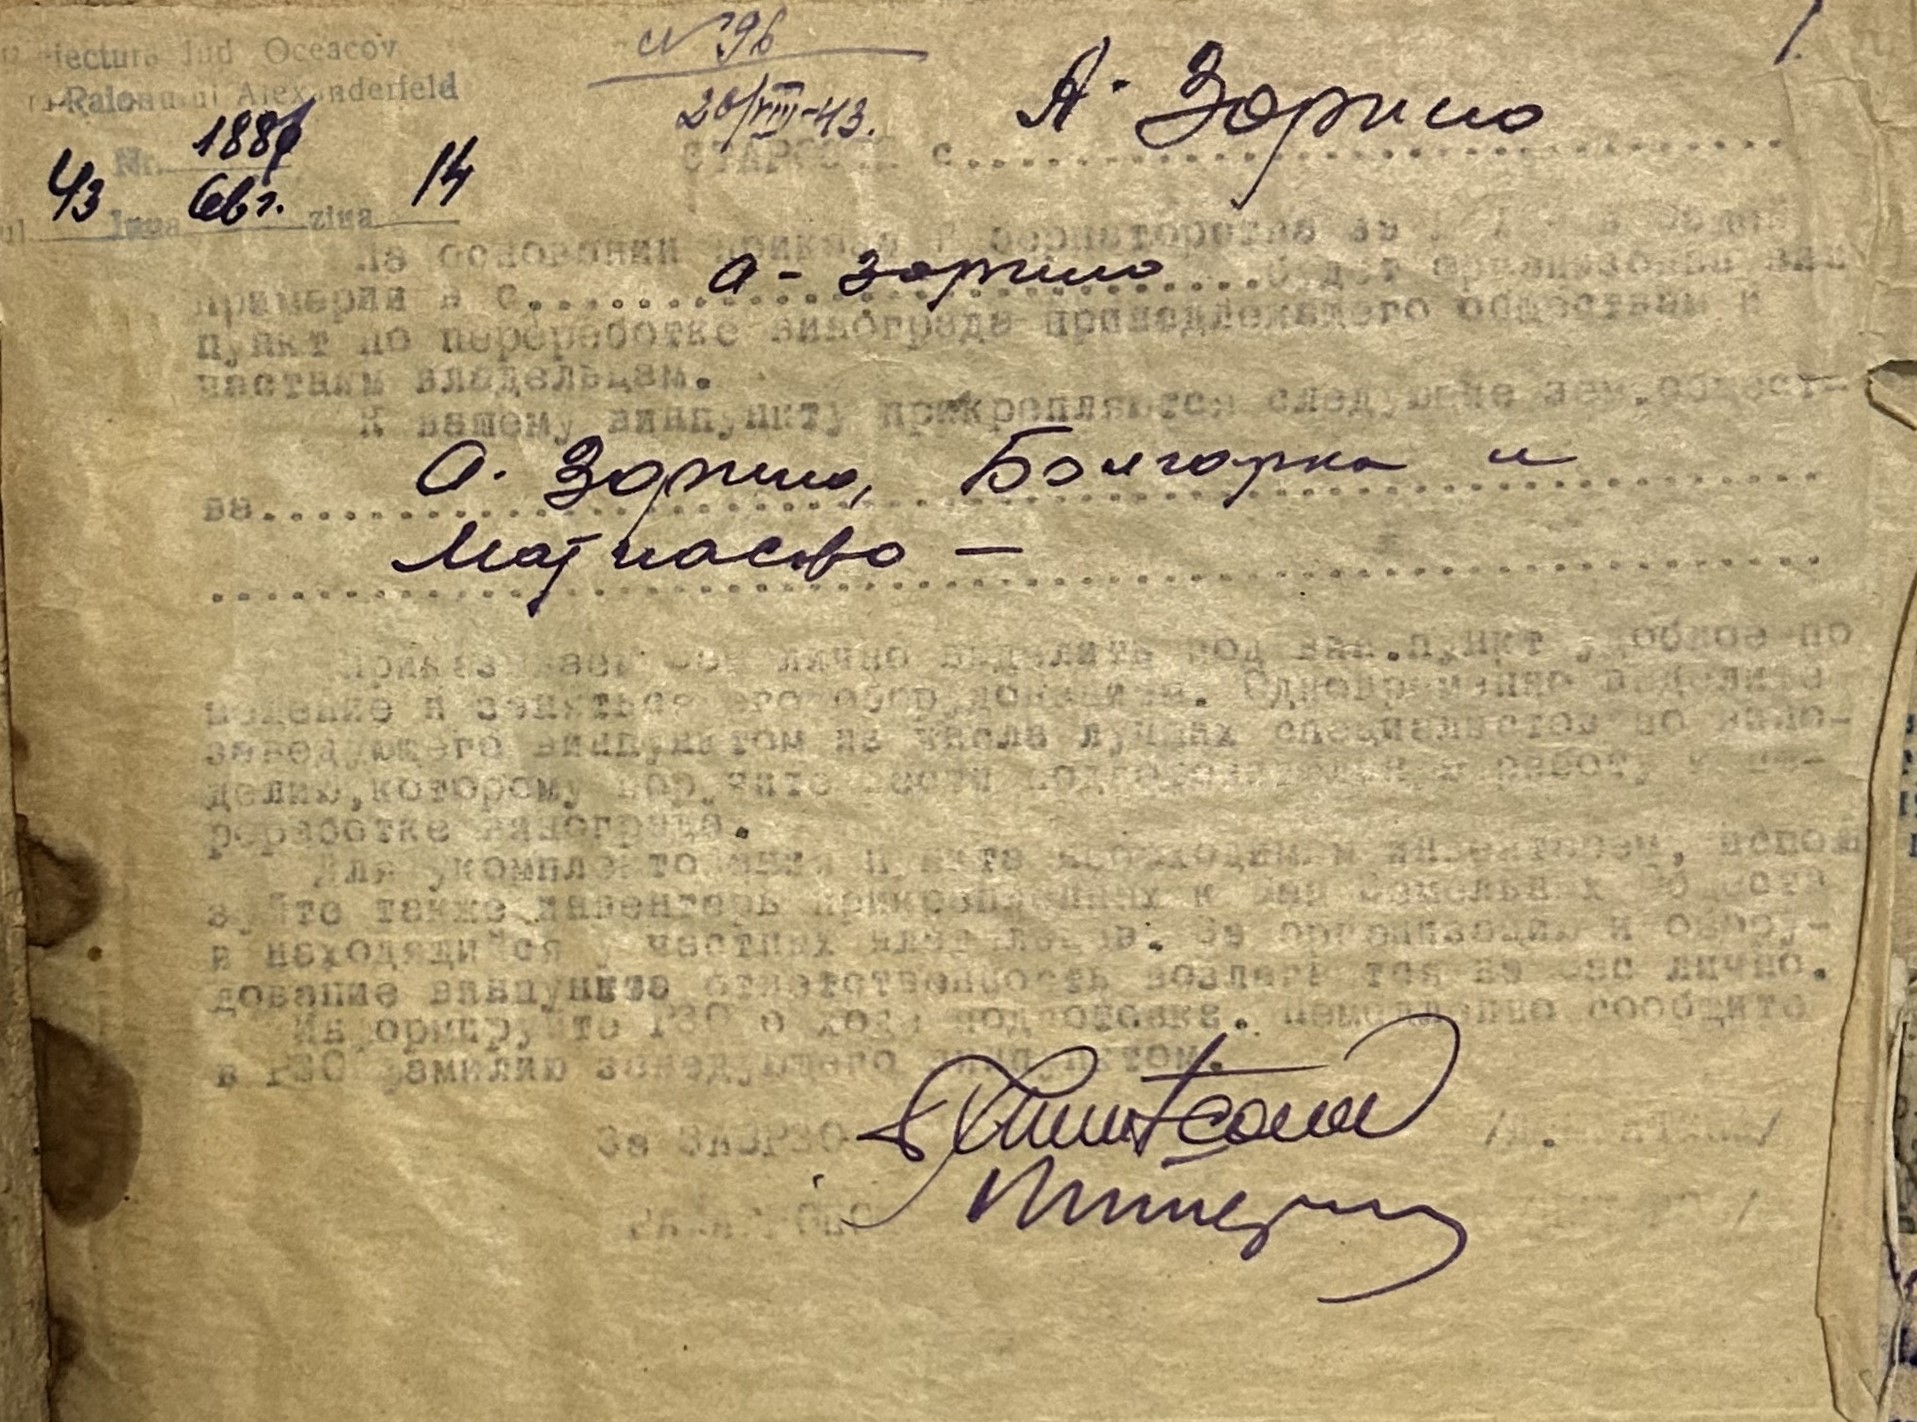 Jud Oceacov
Raionului Alexanderfeld
№ 96
20/VIII-43.
А. Зорино
СТАРОСТЕ с.
Nr. 1886
43 Авг. 14
Luna ziua
На основании приказа Губернаторства за
примерии в с. А-Зорино будет организован вин-
пункт по переработке винограда принадлежащего обществам и
частным владельцам.
К вашему винпункту прикрепляются следующие зем.общест-
ва А. Зорино, Болгарка и
Матиасово —
Приказываем Вам лично выделить под вин.пункт удобное по
мещение и заняться его оборудованием. Одновременно выделите
заведующего винпунктом из числа лучших специалистов по вино-
делию,которому поручите вести подготовительную работу к пе-
реработке винограда.
Для укомплектования пункта необходимым инвентарем, исполь
зуйте также инвентарь прикрепленных к Вам земельных обществ
и находящийся у частных владельцев. За организацию и обору-
дование винпункта ответственность возлагается на Вас лично.
Информируйте РЗО о ходе подготовки. Немедленно сообщите
в РЗО фамилию заведующего винпунктом.
За ЗАВРЗО